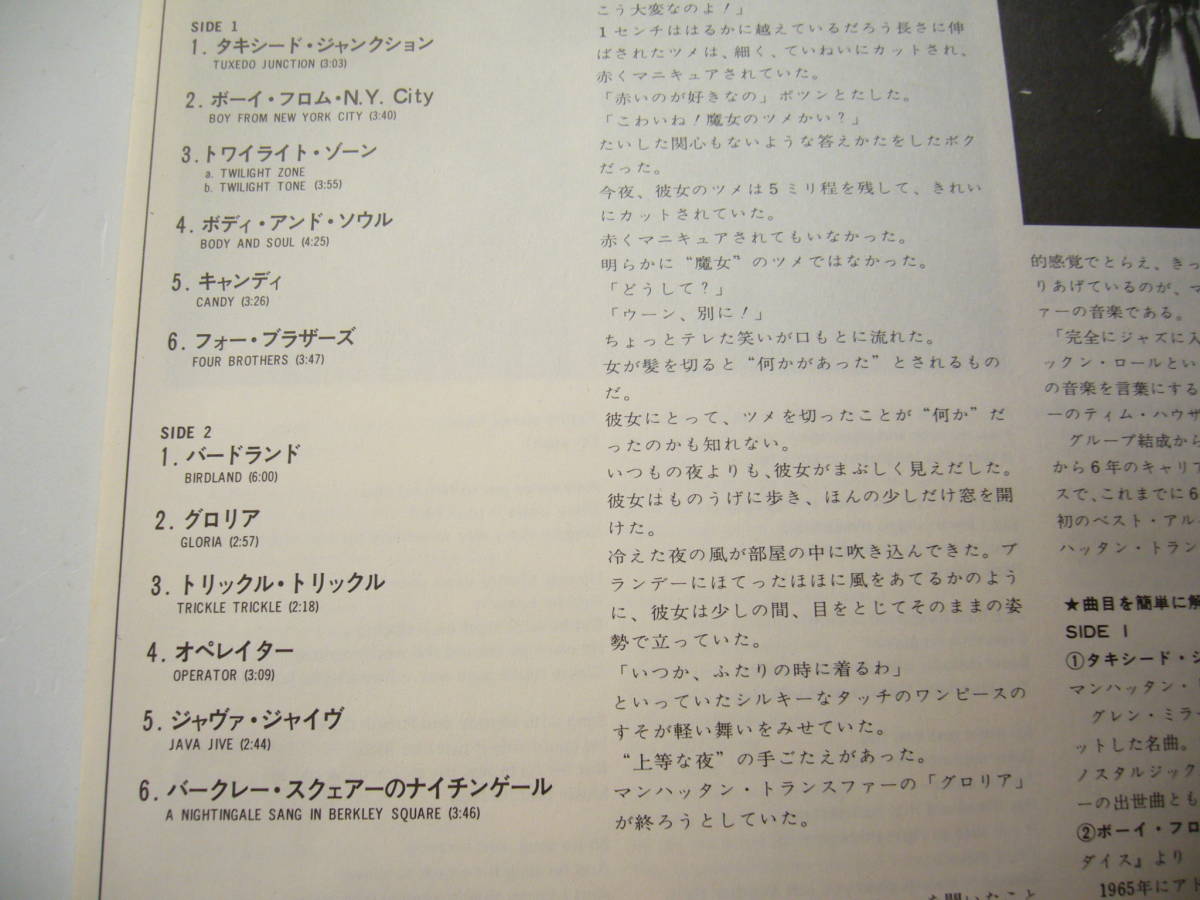 SIDE 1
1. タキシード・ジャンクション
TUXEDO JUNCTION (3:03)
2. ボーイ・フロム・N.Y. City
BOY FROM NEW YORK CITY (3:40)
3. トワイライト・ゾーン
a. TWILIGHT ZONE
b. TWILIGHT TONE (3:55)
4. ボディ・アンド・ソウル
BODY AND SOUL (4:25)
5. キャンディ
CANDY (3:26)
6. フォー・ブラザーズ
FOUR BROTHERS (3:47)
SIDE 2
1. バードランド
BIRDLAND (6:00)
2. グロリア
GLORIA (2:57)
3. トリックル・トリックル
TRICKLE TRICKLE (2:18)
4. オペレイター
OPERATOR (3:09)
5. ジャヴァ・ジャイヴ
JAVA JIVE (2:44)
6. バークレー・スクェアーのナイチンゲール
A NIGHTINGALE SANG IN BERKLEY SQUARE (3:46)
こう大変なのよ！」
1センチははるかに越えているだろう長さに伸
ばされたツメは、細く、ていねいにカットされ、
赤くマニキュアされていた。
「赤いのが好きなの」ポツンとたした。
「こわいね！魔女のツメかい？」
たいした関心もないような答えかたをしたボク
だった。
今夜、彼女のツメは5ミリ程を残して、きれい
にカットされていた。
赤くマニキュアされてもいなかった。
明らかに“魔女”のツメではなかった。
「どうして？」
「ウーン、別に！」
ちょっとテレた笑いが口もとに流れた。
女が髪を切ると“何かがあった”とされるもの
だ。
彼女にとって、ツメを切ったことが“何か”だ
ったのかも知れない。
いつもの夜よりも、彼女がまぶしく見えだした。
彼女はものうげに歩き、ほんの少しだけ窓を開
けた。
冷えた夜の風が部屋の中に吹き込んできた。ブ
ランデーにほてったほほに風をあてるかのよう
に、彼女は少しの間、目をとじてそのままの姿
勢で立っていた。
「いつか、ふたりの時に着るわ」
といっていたシルキーなタッチのワンピースの
すそが軽い舞いをみせていた。
“上等な夜”の手ごたえがあった。
マンハッタン・トランスファーの「グロリア」
が終ろうとしていた。
的感覚でとらえ、きっ
りあげているのが、マ
ァーの音楽である。
「完全にジャズに入
ックン・ロールとい
の音楽を言葉にする
ーのティム・ハウザ
グループ結成から
から6年のキャリア
スで、これまでに6
初のベスト・アル
ハッタン・トラン
★曲目を簡単に解
SIDE I
①タキシード・ジ
マンハッタン・
グレン・ミラー
ットした名曲。
ノスタルジック
ーの出世曲とも
②ボーイ・フロ
ダイス』より
1965年にアト